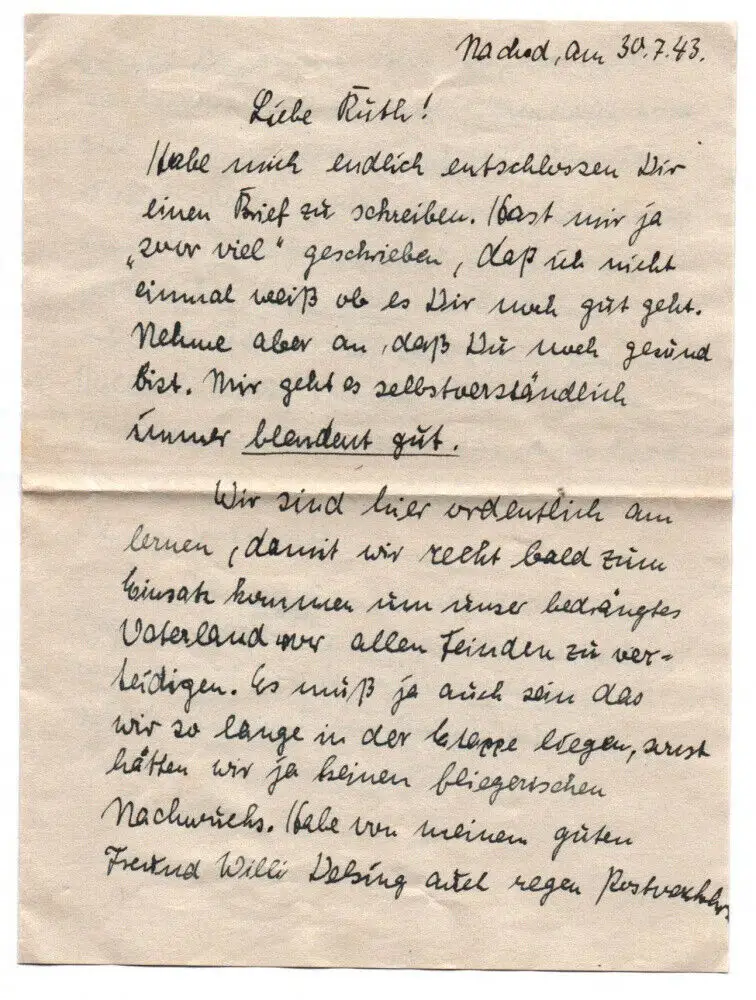 Nachod, am 30.7.43.
Liebe Ruth!
Habe mich endlich entschlossen Dir
einen Brief zu schreiben. Hast mir ja
„soor viel" geschrieben, daß ich nicht
einmal weiß ob es Dir noch gut geht.
Nehme aber an, daß Du noch gesund
bist. Mir geht es selbstverständlich
immer blendent gut.
Wir sind hier ordentlich am
lernen, damit wir recht bald zum
Einsatz kommen um unser bedrängtes
Vaterland vor allen Feinden zu ver=
teidigen. Es muß ja auch sein das
wir so lange in der Etappe liegen, sonst
hätten wir ja keinen fliegerischen
Nachwuchs. Habe von meinem guten
Freund Willi auch regen Postverkehr.